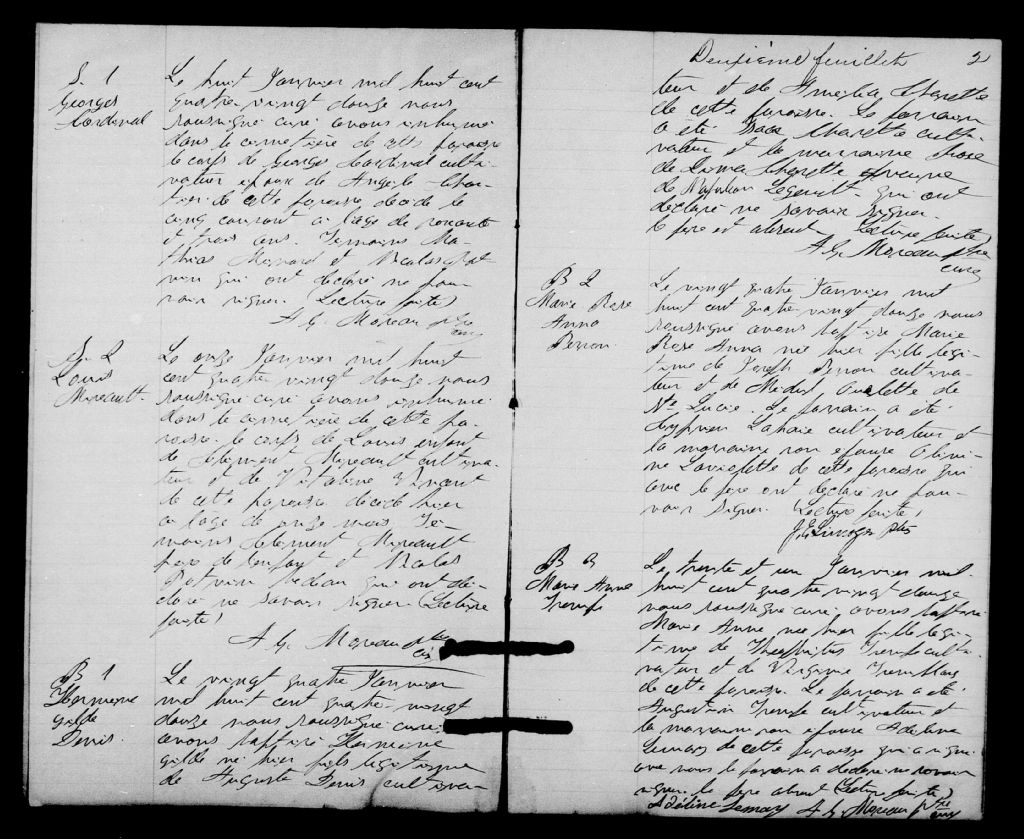 S. 1
Georges
Cardinal
Le huit Janvier mil huit cent
quatre vingt douze nous
soussigné curé avons inhumé
dans le cimetière de cette paroisse
le corps de Georges Cardinal culti-
vateur époux de Angele Char-
tier de cette paroisse décédé le
cinq courant a l'age de soixante
et trois ans. Temoins Ma-
thias Menard et Nicolas Pot-
vin qui ont declaré ne pou-
voir signer. (Lecture faite)
A. G. Moreau ptre
curé
S. 2
Louis
Mireault
Le onze Janvier mil huit
cent quatre vingt douze nous
soussigné curé avons inhumé
dans le cimetière de cette pa-
roisse le corps de Louis enfant
de Clement Mireault cultiva-
teur et de Vitaline Vincent
de cette paroisse décédé hier
a l'age de onze mois Te-
moins Clement Mireault
père de l'enfant et Nicolas
Potvin bedeau qui ont dé-
claré ne savoir signer (Lecture
faite)
A. G. Moreau ptre
curé
B 1
Hermene
gilde
Denis.
Le vingt quatre Janvier
mil huit cent quatre-vingt
douze nous soussigné curé
avons baptisé Hermene
gilde né hier fils legitime
de Auguste Denis cultiva-
Deuxième feuillet
2
teur et de Amelia Charette
de cette paroisse. Le parrain
a été Isaac Charette culti-
vateur et la marraine Rose
de Lima Charette épouse
de Napoleon Legault qui ont
declaré ne savoir signer.
le père est absent. Lecture faite)
A. G. Moreau ptre
curé
B 2
Marie Rose
Anna
Perron.
Le vingt quatre Janvier mil
huit cent quatre vingt douze nous
soussigné avons baptisé Marie
Rose Anna née hier fille legi-
time de Joseph Perron cultiva-
teur et de Ouelette de
Ste Lucie. Le parrain a été
Cyprien Lahaie cultivateur et
la marraine son épouse
Laviolette de cette paroisse qui
avec le père ont declaré ne pou-
voir signer. Lecture faite)
Limoges ptre
B 3
Marie Anne
Trempe
Le trente et un Janvier mil
huit cent quatre vingt douze
nous soussigné curé avons baptisé
Marie Anne née hier fille legi-
time de Trempe culti-
vateur et de Virginie Tremblay
de cette paroisse. Le parrain a été
Augustin Trempe cultivateur et
la marraine son épouse Adeline
Lemay de cette paroisse qui a signé
avec nous le parrain a declaré ne savoir
signer. le père absent (Lecture faite)
Adéline Lemay A. G. Moreau ptre
curé